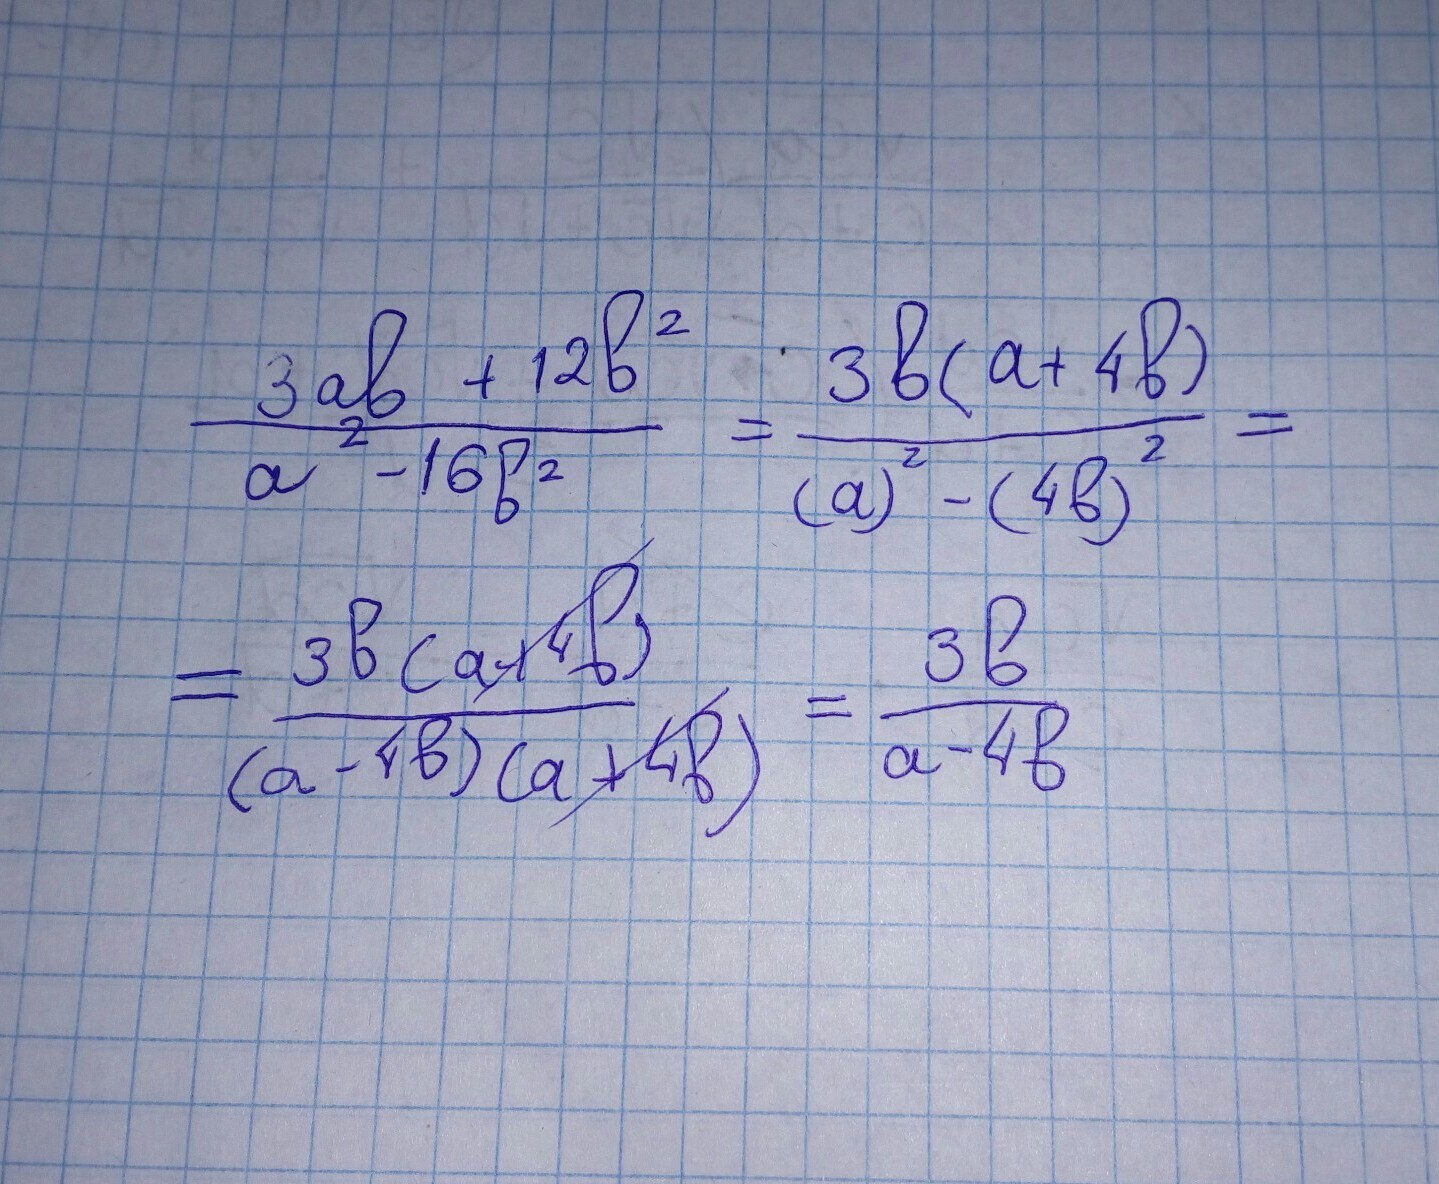 (3ab + 12b²)/(a² - 16b²) = (3b(a + 4b))/((a)² - (4b)²) =
= (3b(a + 4b))/((a - 4b)(a + 4b)) = (3b)/(a - 4b)